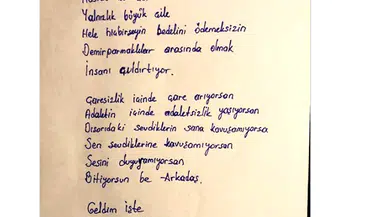 Yalnızlık büyük aile
Hele hiçbirşeyin bedelini ödemeksizin
Demirparmaklıklar arasında olmak
İnsanı çıldırtıyor.
Çaresizlik içinde çare arıyorsan
Adaletin içinde adaletsizlik yaşıyorsan
Dışarıdaki sevdiklerin sana kavuşamıyorsa
Sen sevdiklerine kavuşamıyorsan
Sesini duyuramıyorsan
Bitiyorsun be -Arkadaş.
Geldim işte